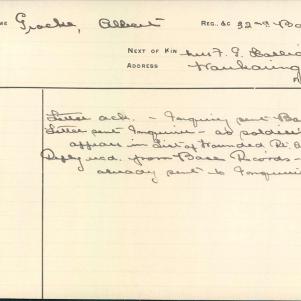 ME Grocke, Albert REG. &c 32nd Ba
NEXT OF KIN Mrs F. G.
ADDRESS
Letter ack. - Inquiry sent Ba
Letter sent Inquirer - as soldier
appears in List of Wounded. Pt. 
Reply recd. from Base Records -
already sent to Inquirer